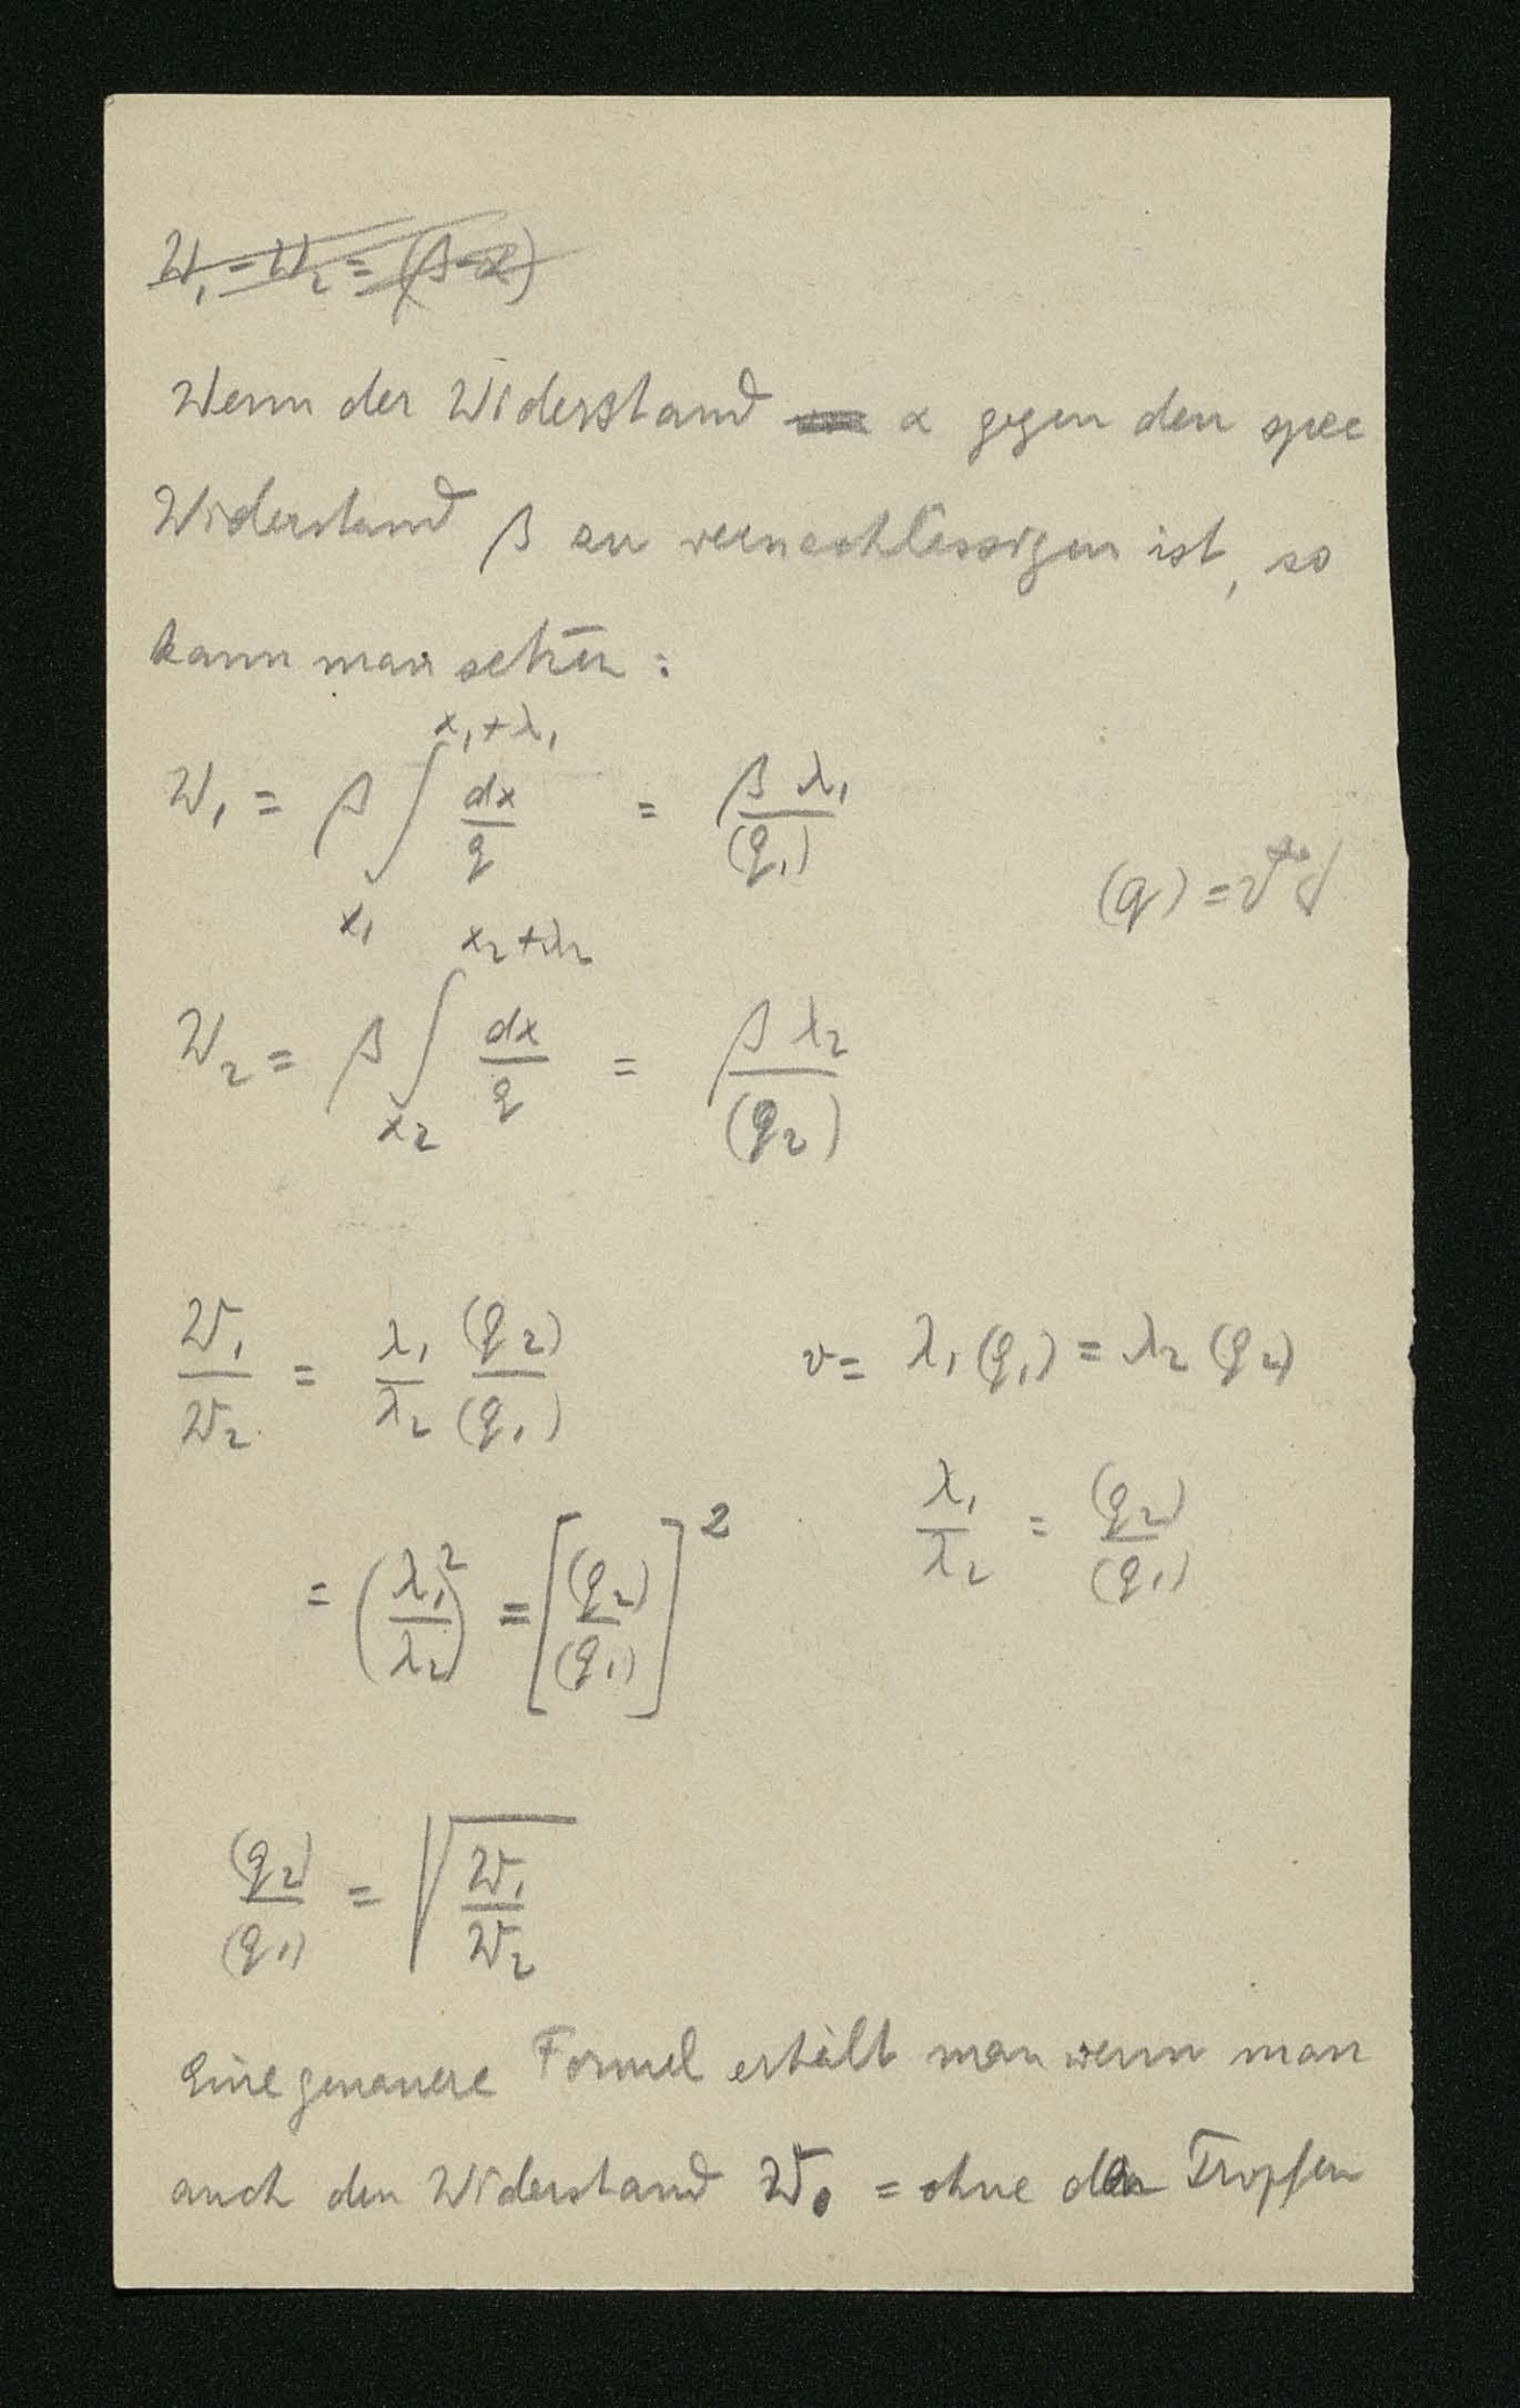 W₁ = W₂ = (β-α)
Wenn der Widerstand α gegen den spec
Widerstand β zu vernachlässigen ist, so
kann man setzen:
W₁ = β ∫_{x₁}^{x₁+λ₁} dx/q = β λ₁/(q₁)
(q) =
W₂ = β ∫_{x₂}^{x₂+λ₂} dx/q = β λ₂/(q₂)
W₁/W₂ = λ₁/λ₂ (q₂)/(q₁)
v = λ₁(q₁) = λ₂(q₂)
λ₁/λ₂ = (q₂)/(q₁)
= (λ₁/λ₂)² = [(q₂)/(q₁)]²
(q₂)/(q₁) = √(W₁/W₂)
Eine genauere Formel erhält man wenn man
auch den Widerstand W₀ = ohne den Tropfen